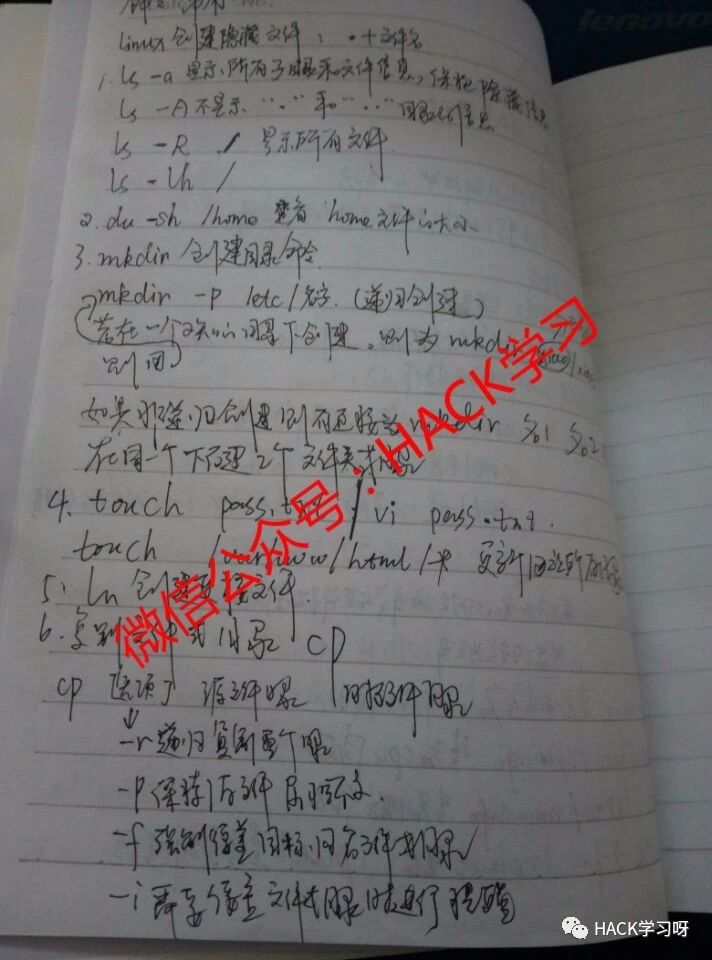 lenovo
Linux 创建隐藏文件：.+文件名
1. ls -a 显示所有子目录和文件信息，包括隐藏信息
ls -A 不显示 "." 和 ".." 目录的信息
ls -R / 显示所有文件
ls -lh /
2. du -sh /home 查看 home 文件的大小
3. mkdir 创建目录命令
mkdir -p /etc/名字. (递归创建)
若在一个 的目录下创建，则为 mkdir
创建
如果非递归创建则可直接 mkdir
在同一个下创建2个文件夹
4. touch pass.txt / vi pass.txt.
touch /var/www/html/* 更新
5. ln 创建 文件
6. 复制文件或目录 cp
cp [选项] 源文件目录 目标文件目录
-r 递归复制整个目录
-p 保持 文件属性不变.
-f 强制覆盖目标同名文件或目录
-i 需要覆盖文件或目录时进行提醒
微信公众号：HACK学习
HACK学习呀